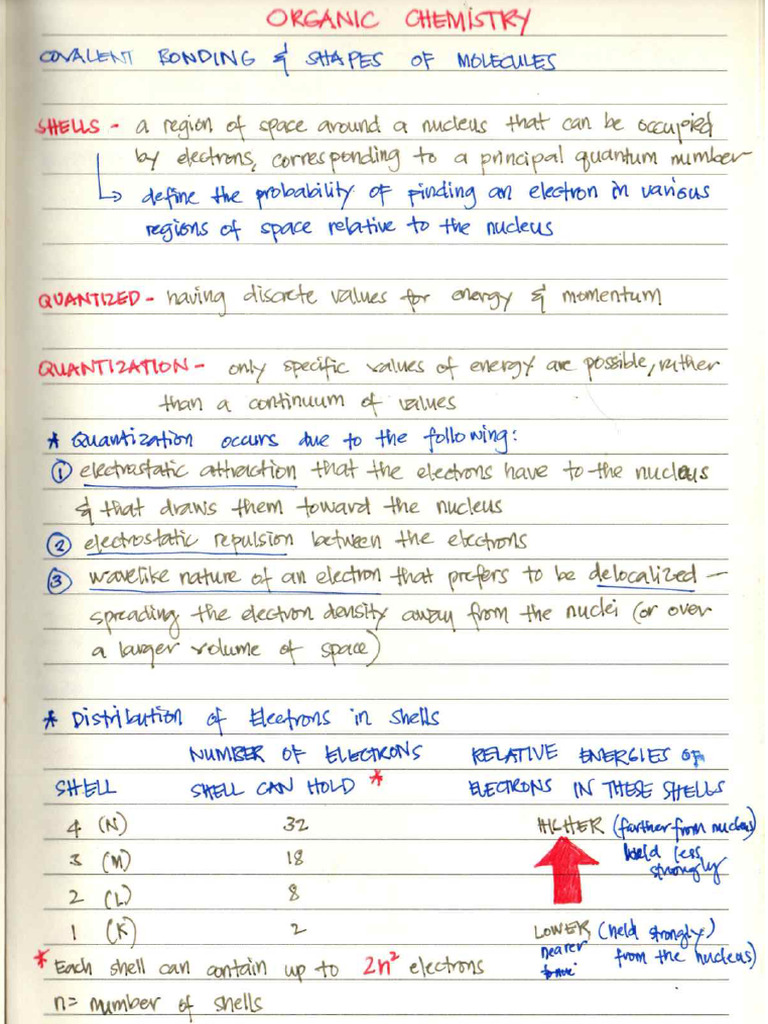 ORGANIC CHEMISTRY
COVALENT BONDING & SHAPES OF MOLECULES
SHELLS - a region of space around a nucleus that can be occupied
by electrons, corresponding to a principal quantum number
↳ define the probability of finding an electron in various
regions of space relative to the nucleus
QUANTIZED - having discrete values for energy & momentum
QUANTIZATION - only specific values of energy are possible, rather
than a continuum of values
* Quantization occurs due to the following:
① electrostatic attraction that the electrons have to the nucleus
& that draws them toward the nucleus
② electrostatic repulsion between the electrons
③ wavelike nature of an electron that prefers to be delocalized —
spreading the electron density away from the nuclei (or over
a larger volume of space)
* Distribution of Electrons in shells
NUMBER OF ELECTRONS RELATIVE ENERGIES OF
SHELL SHELL CAN HOLD * ELECTRONS IN THESE SHELLS
4 (N) 32 HIGHER (farther from nucleus)
3 (M) 18 held less
strongly
2 (L) 8
1 (K) 2 LOWER (held strongly)
nearer
from the nucleus)
* Each shell can contain up to 2n² electrons
n = number of shells